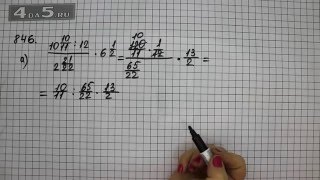 4ДА5.RU
846.
а) 10 10/11 : 12 / 2 21/22 · 6 1/2 = 120/11 10 · 1/12 / 65/22 · 13/2 =
= 10/11 : 65/22 · 13/2